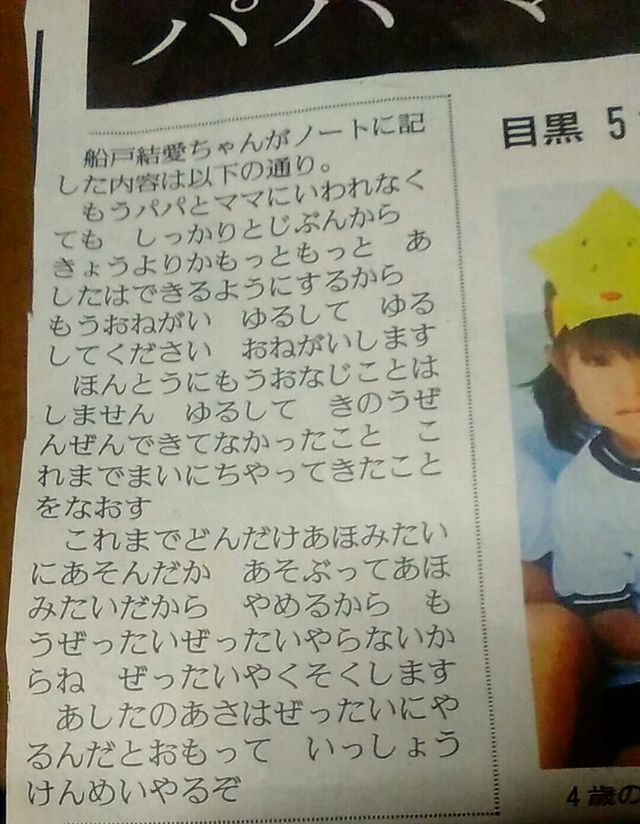 パパ マ
船戸結愛ちゃんがノートに記
した内容は以下の通り。
もうパパとママにいわれなく
ても　しっかりとじぶんから
きょうよりかもっともっと　あ
したはできるようにするから
もうおねがい　ゆるして　ゆる
してください　おねがいします
ほんとうにもうおなじことは
しません　ゆるして　きのうぜ
んぜんできてなかったこと　こ
れまでまいにちやってきたこと
をなおす
これまでどんだけあほみたい
にあそんだか　あそぶってあほ
みたいだから　やめるから　も
うぜったいぜったいやらないか
らね　ぜったいやくそくします
あしたのあさはぜったいにや
るんだとおもって　いっしょう
けんめいやるぞ
目黒 5
4歳の